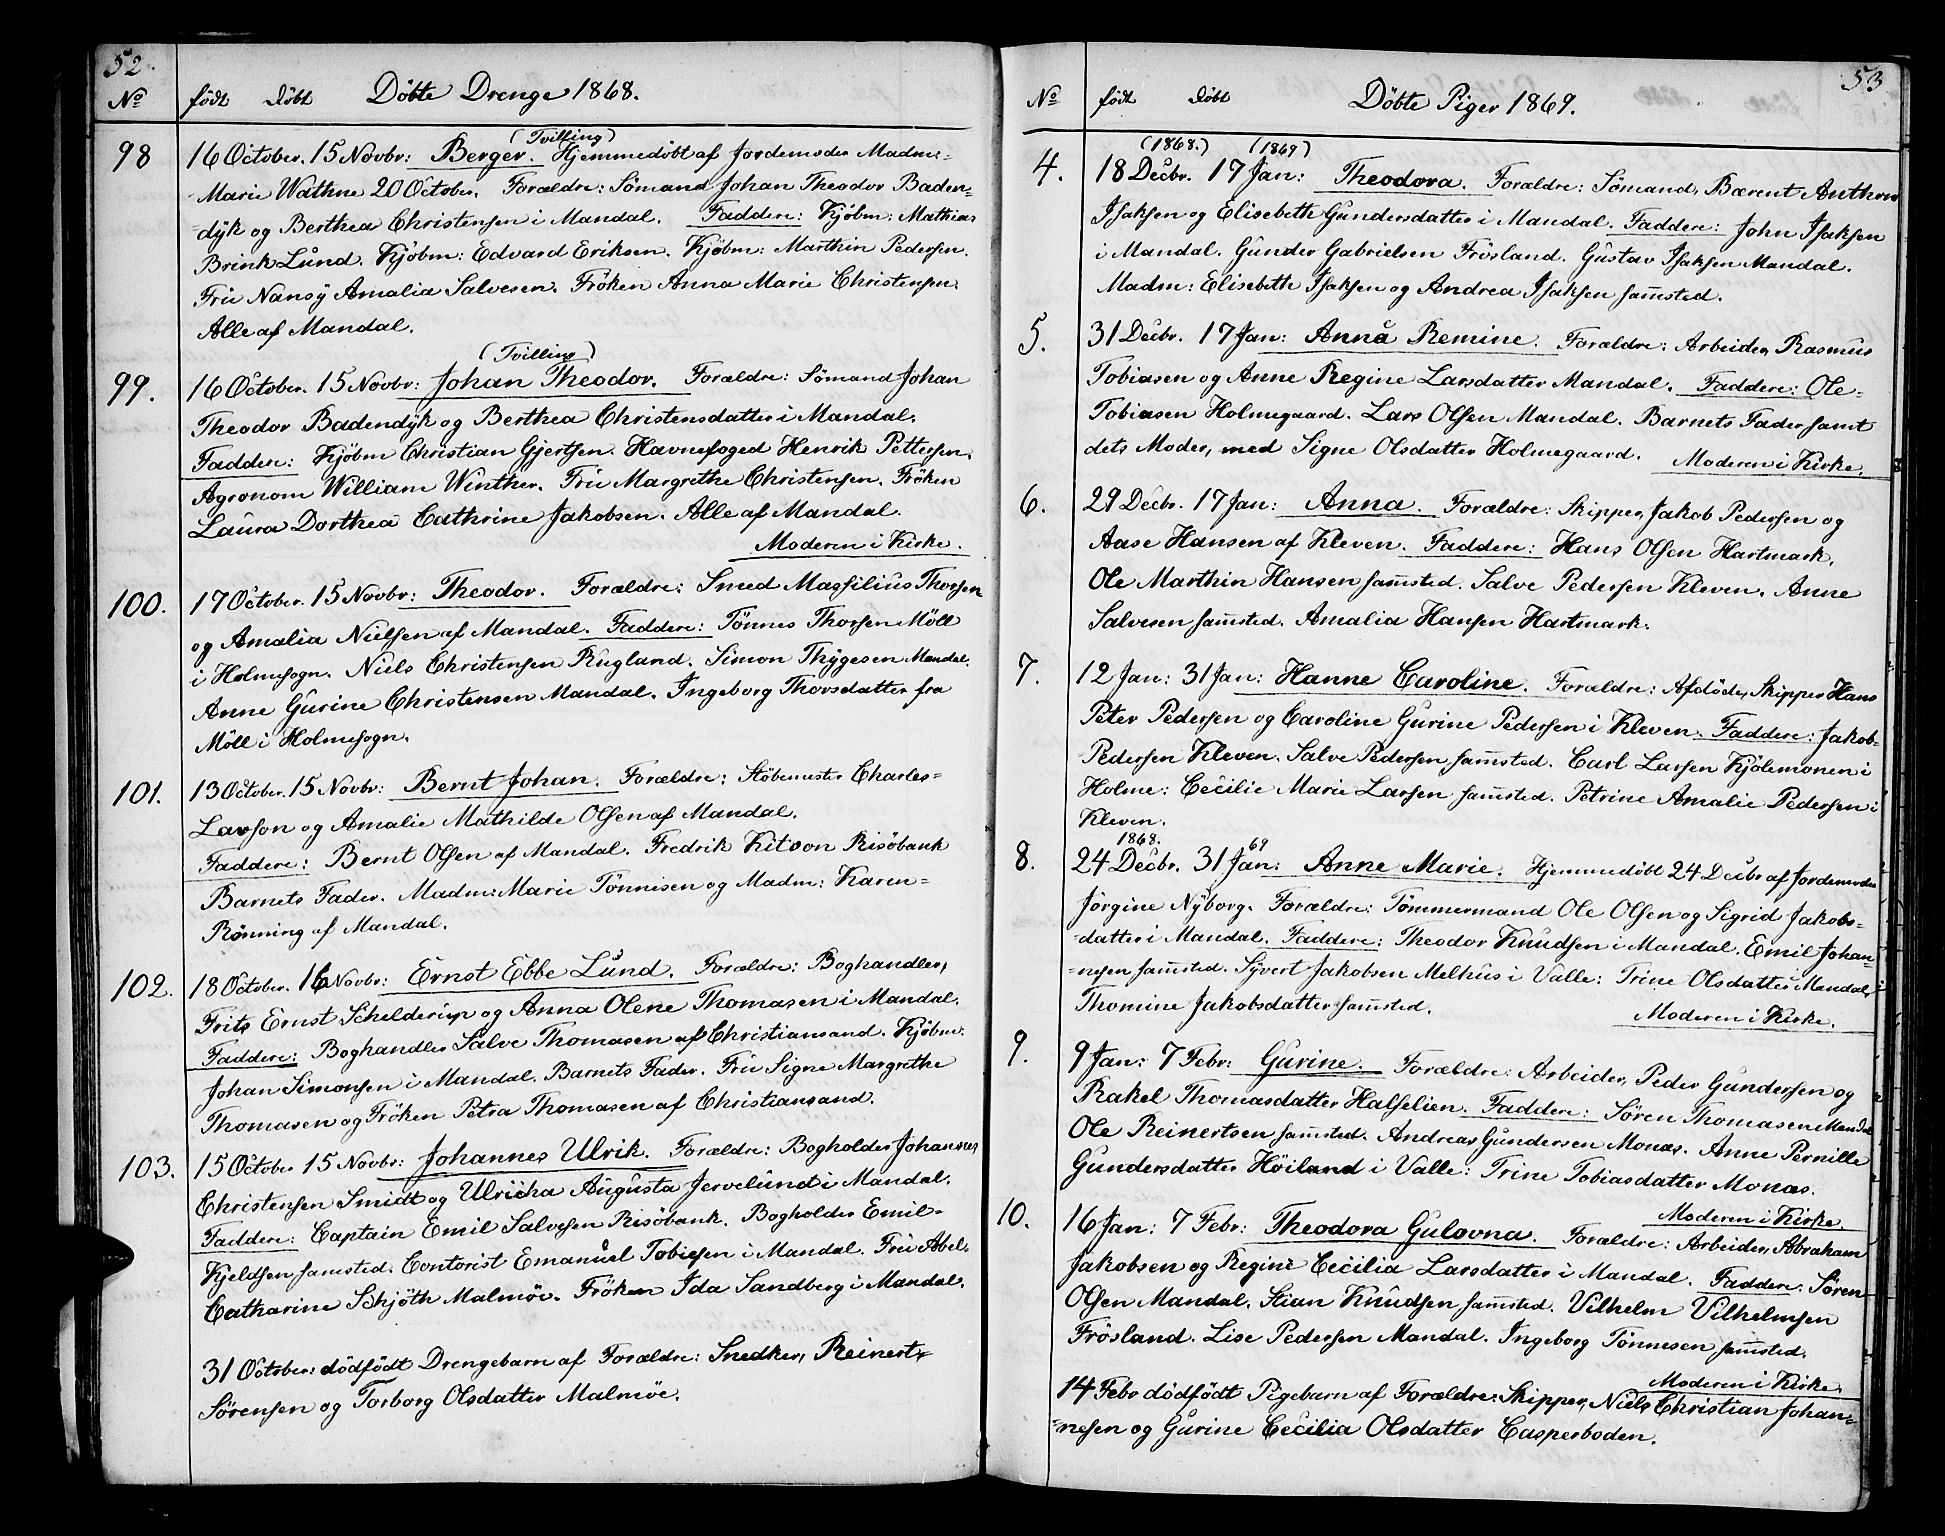 52.
No født Døbt Døbte Drenge 1868.
(Tvilling)
98 16 October. 15 Novbr: Berger. Hjemmedøbt af Jordemoder Madm:
Marie Wathne 20 October. Forældre: Sömand Johan Theodor Baden-
dyk og Berthea Christensen i Mandal. Faddere: Kjöbm: Mathias
Brink Lund. Kjöbm: Edvard Eriksen. Kjöbm: Marthin Pedersen.
Fru Nansy Amalia Salvesen. Fröken Anna Marie Christensen.
Alle af Mandal.
(Tvilling)
99. 16 October. 15 Novbr: Johan Theodor. Forældre: Sömand Johan
Theodor Badendyk og Berthea Christensdatter i Mandal.
Faddere: Kjöbm Christian Gjertsen. Havnefoged Henrik Pettersen.
Agronom William Winther. Fru Margrethe Christensen. Fröken
Laura Dorthea Cathrine Jakobsen. Alle af Mandal.
Moderen i Kirke.
100. 17 October. 15 Novbr: Theodor. Forældre: Smed Massilius Thorsen
og Amalia Nielsen af Mandal. Faddere: Tönnes Thorsen Möll
i Holmesogn. Niels Christensen Rugland. Simon Thygesen Mandal.
Anne Gurine Christensen Mandal. Ingeborg Thorsdatter fra
Möll i Holmesogn.
101. 13 October. 15 Novbr: Bernt Johan. Forældre: Stöbemester Charles-
Larson og Amalie Mathilde Olsen af Mandal.
Faddere: Bernt Olsen af Mandal. Fredrik Kitson Risöbank
Barnets Fader. Madm: Marie Tönnisen og Madm: Karen-
Rönning af Mandal.
102. 18 October. 16 Novbr: Ernst Ebbe Lund. Forældre: Boghandler,
Frits Ernst Schelderup og Anna Olene Thomasen i Mandal.
Faddere: Boghandler Salve Thomasen af Christiansand. Kjöbm:
Johan Simonsen i Mandal. Barnets Fader. Fru Signe Margrethe
Thomasen og Fröken Petra Thomasen af Christiansand.
103. 15 October 15 Novbr: Johannes Ulrik. Forældre: Bogholder Johannes
Christensen Smidt og Ulricha Augusta Jervelund i Mandal.
Faddere: Captain Emil Salvesen Risöbank. Bogholder Emil-
Kjeldsen samsted. Contorist Emanuel Tobiesen i Mandal. Fru Abel-
Catharine Schjöth Malmöe. Fröken Ida Sandberg i Mandal.
31 October: dödfödt Drengebarn af Forældre: Snedker, Reinert-
Sörensen og Torborg Olsdatter Malmöe.
53
No født Døbt Döbte Piger 1869.
(1868.) (1869)
4. 18 Decbr. 17 Jan: Theodora. Forældre: Sömand, Bærent Anthon
Isaksen og Elisebeth Gundersdatter i Mandal. Faddere: John Isaksen
i Mandal. Gunder Gabrielsen Frösland. Gustav Isaksen Mandal.
Madm: Elisebeth Isaksen og Andrea Isaksen samsted.
5. 31 Decbr. 17 Jan: Anna Remine. Forældre: Arbeider, Rasmus
Tobiasen og Anne Regine Larsdatter Mandal. Faddere: Ole-
Tobiasen Holmegaard. Lars Olsen Mandal. Barnets Fader samt
dets Moder, med Signe Olsdatter Holmegaard. Moderen i Kirke.
6. 29 Decbr. 17 Jan: Anna. Forældre: Skipper, Jakob Pedersen og
Aase Hansen af Kleven. Faddere: Hans Olsen Hartmark.
Ole Marthin Hansen samsted. Salve Pedersen Kleven. Anne
Salvesen samsted. Amalia Hansen Hartmark.
7. 12 Jan: 31 Jan: Hanne Caroline. Forældre: Afdöde, Skipper Hans
Peter Pedersen og Caroline Gurine Pedersen i Kleven. Faddere: Jakob-
Pedersen Kleven. Salve Pedersen samsted. Carl Larsen Kjölemonen i
Holme: Cecilie Marie Larsen samsted. Petrine Amalie Pedersen i
Kleven.
1868. 69
8. 24 Decbr. 31 Jan: Anne Marie. Hjemmedöbt 24 Decbr af Jordemoder
Jörgine Nyborg. Forældre: Tömmermand Ole Olsen og Sigrid Jakobs-
-datter i Mandal. Faddere: Theodor Knudsen i Mandal. Emil Johan-
-nesen samsted. Syvert Jakobsen Melhus i Valle: Trine Olsdatter Mandal,
Thomine Jakobsdatter samsted. Moderen i Kirke.
9. 9 Jan: 7 Febr: Gurine. Forældre: Arbeider, Peder Gundersen og
Rakel Thomasdatter Halselien. Faddere: Sören Thomasen Mandal
Ole Reinertsen samsted. Andreas Gundersen Monas. Anne Pernille
Gundersdatter Höiland i Valle: Trine Tobiasdatter Monas.
Moderen i Kirke.
10. 16 Jan: 7 Febr: Theodora Gulovna. Forældre: Arbeider, Abraham
Jakobsen og Regine Cecilia Larsdatter i Mandal. Faddere. Sören
Olsen Mandal. Stian Knudsen samsted. Vilhelm Vilhelmsen
Frösland. Lise Pedersen Mandal. Ingeborg Tönnesen samsted.
Moderen i Kirke.
14 Febr dödfödt Pigebarn af Forældre: Skipper, Niels Christian Johan-
-nesen og Gurine Cecilia Olsdatter Casperboden.